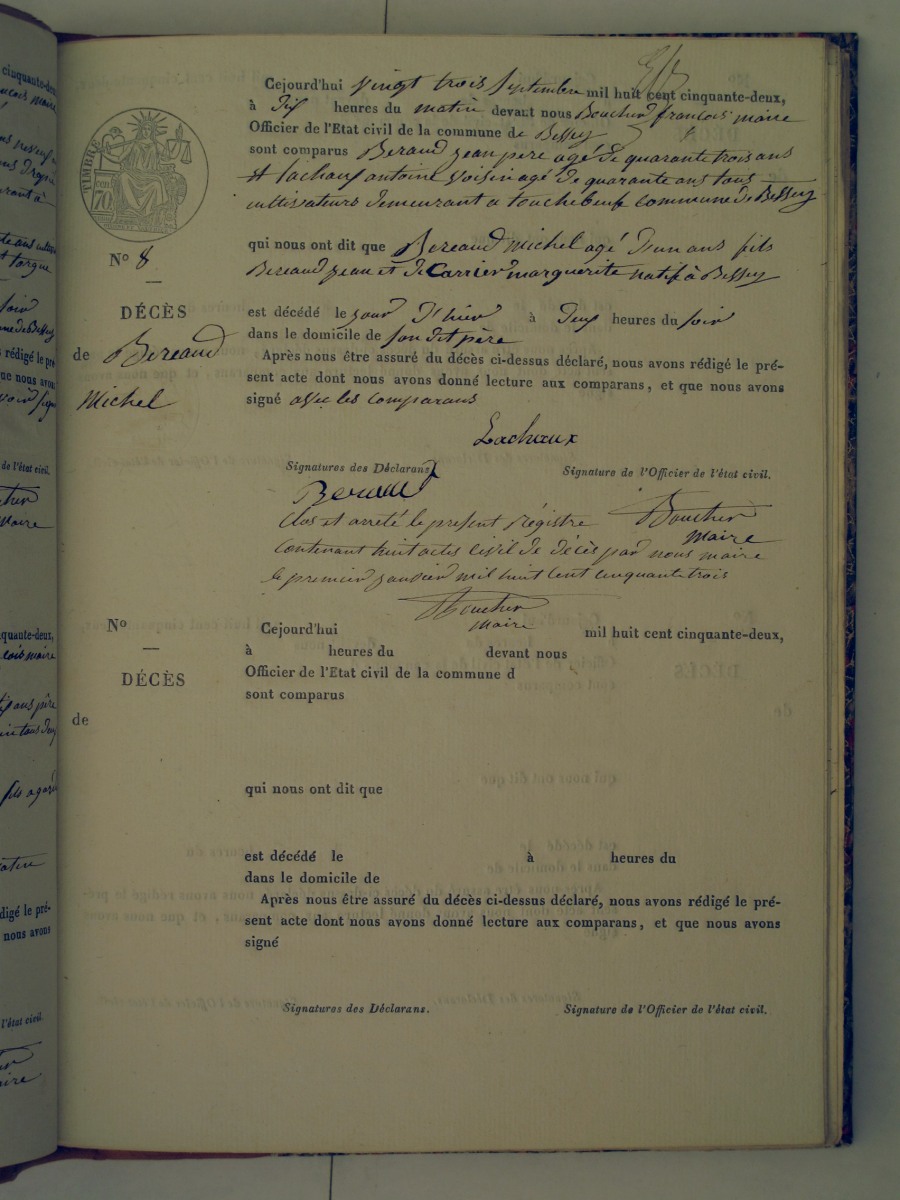 Cejourd'hui vingt trois Septembre mil huit cent cinquante-deux,
à dix heures du matin devant nous Boucher francois maire
Officier de l'Etat civil de la commune de Bessey
sont comparus Beraud jean pere agé de quarante trois ans
et lachaux antoine voisin agé de quarante ans tous
cultivateurs demeurant a touchebeuf commune de Bessey
TIMBRE
70
qui nous ont dit que Bereaud michel agé d'un ans fils
Bereaud jean et de Carrier marguerite natif à Bessey
No 8
DÉCÈS
de Bereaud
Michel
est décédé le jour d'hier à deux heures du soir
dans le domicile de son dit père
Après nous être assuré du décès ci-dessus déclaré, nous avons rédigé le pré-
sent acte dont nous avons donné lecture aux comparans, et que nous avons
signé avec les comparans
Lachaux
Signatures des Déclarans
Signature de l'Officier de l'état civil.
Beraud
Clos et arreté le present régistre Boucher
maire
contenant huit actes civil de décès par nous maire
le premier janvier mil huit cent cinquante trois
Boucher
maire
No
DÉCÈS
de
Cejourd'hui mil huit cent cinquante-deux,
à heures du devant nous
Officier de l'Etat civil de la commune d
sont comparus
qui nous ont dit que
est décédé le à heures du
dans le domicile de
Après nous être assuré du décès ci-dessus déclaré, nous avons rédigé le pré-
sent acte dont nous avons donné lecture aux comparans, et que nous avons
signé
Signatures des Déclarans.
Signature de l'Officier de l'état civil.